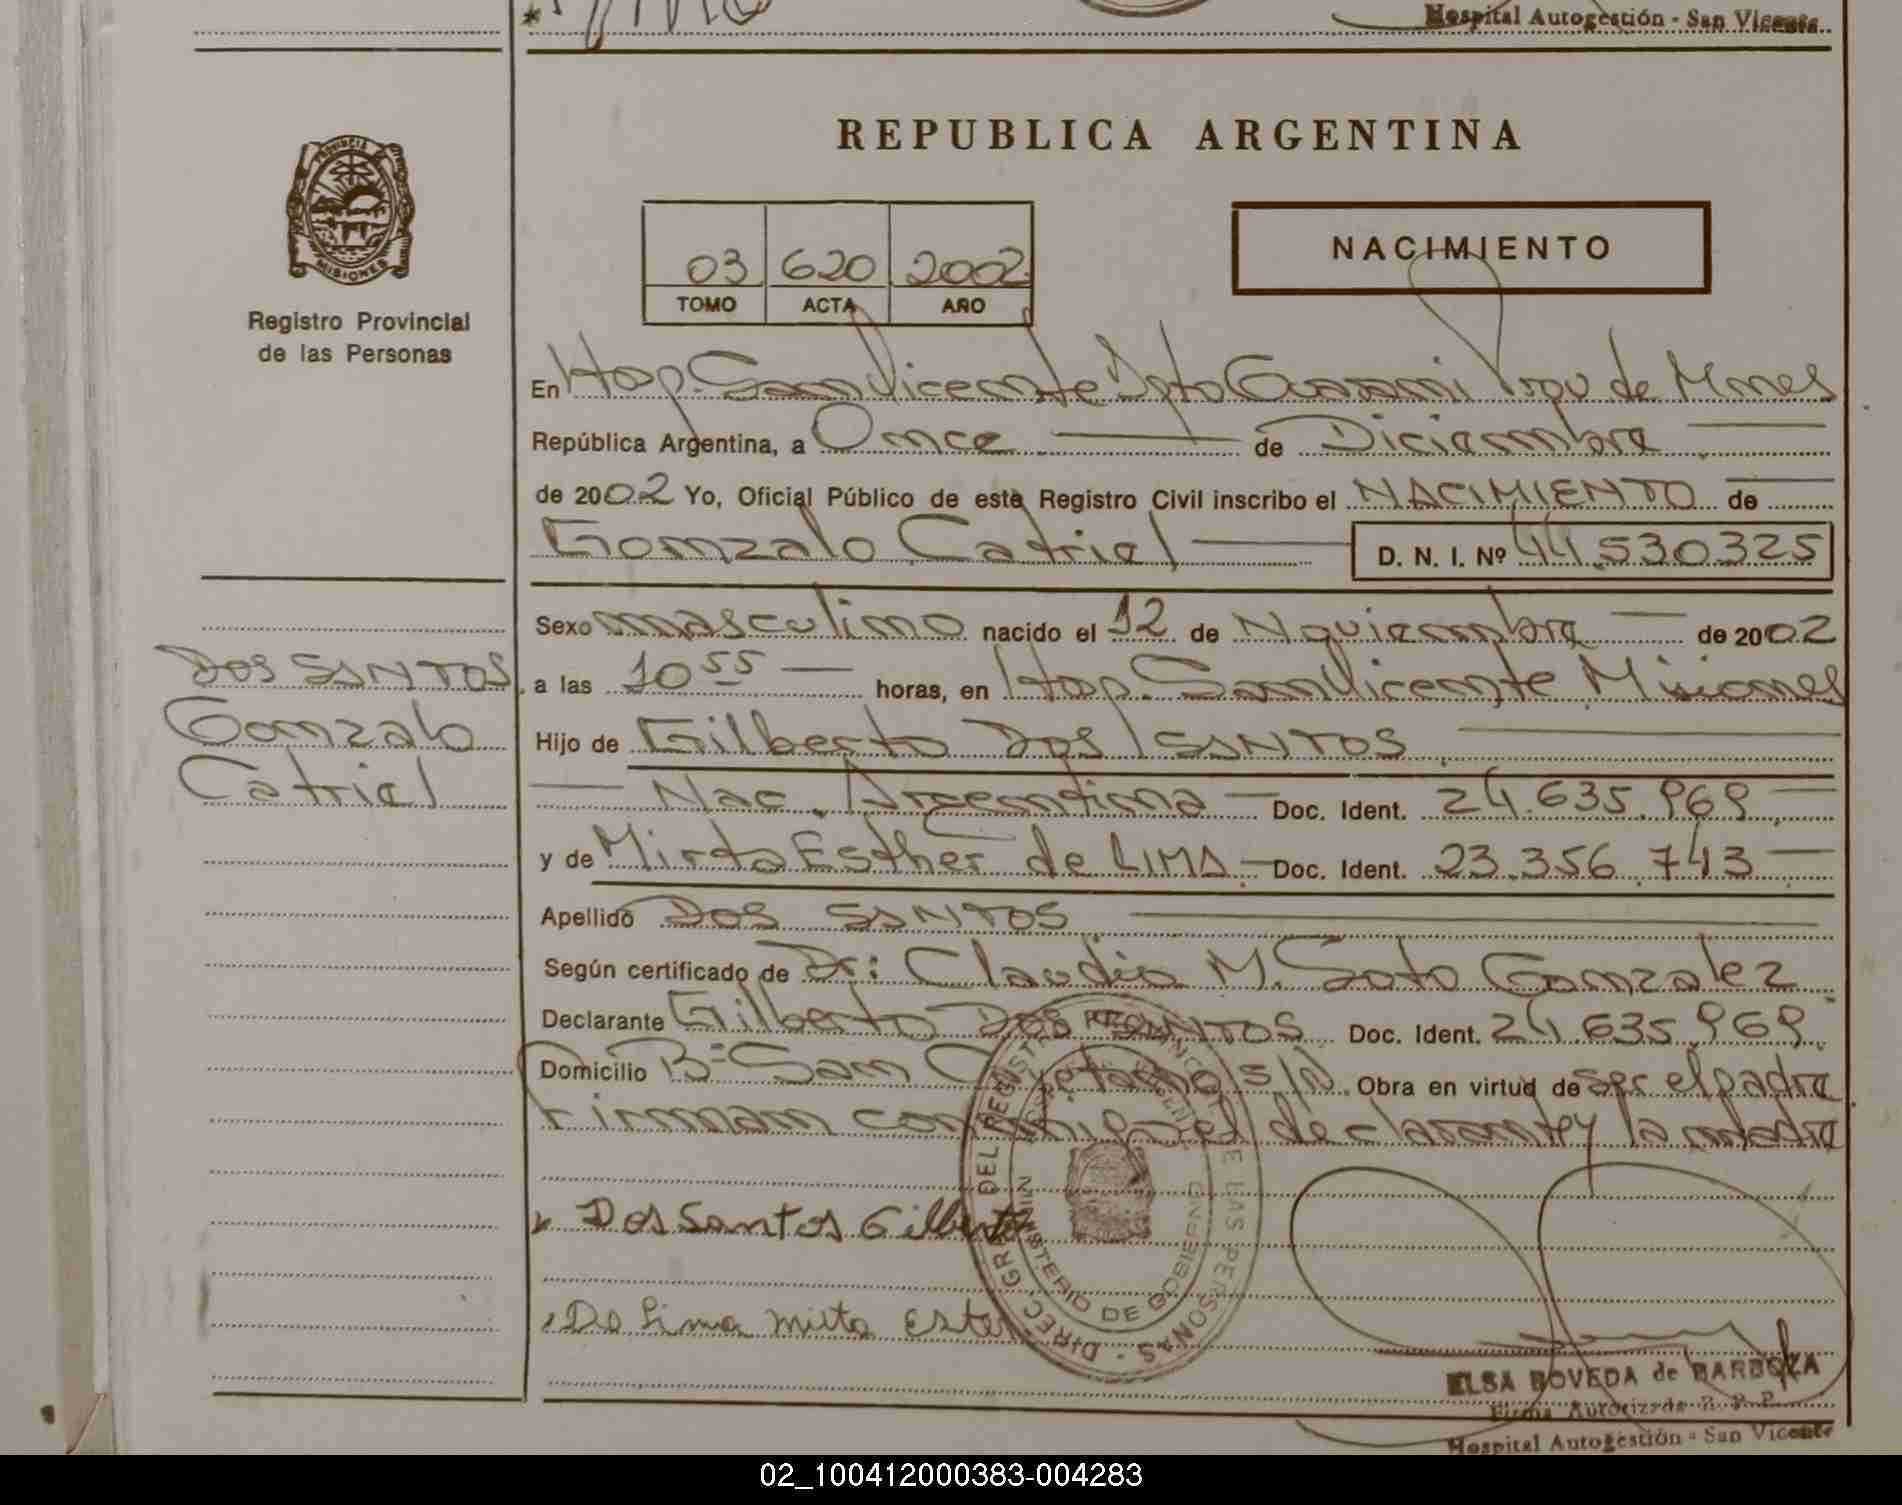 Hospital Autogestión - San Vicente
REPUBLICA ARGENTINA
PROVINCIA DE
MISIONES
Registro Provincial
de las Personas
03 620 2002
TOMO ACTA AÑO
NACIMIENTO
En Hosp. San Vicente Dpto Guarani de Mnes
República Argentina, a Once de Diciembre
de 2002 Yo, Oficial Público de este Registro Civil inscribo el NACIMIENTO de
Gonzalo Catriel D. N. I. Nº 44.530325
Sexo masculino nacido el 12 de Noviembre de 2002
DOS SANTOS
Gonzalo
Catriel
a las 10 55 horas, en Hosp. San Vicente Misiones
Hijo de Gilberto DOS SANTOS
Nac. Argentina Doc. Ident. 24.635.969
y de Mirta Esther de LIMA Doc. Ident. 23.356.743
Apellido DOS SANTOS
Según certificado de Dr: Claudio M. Soto Gonzalez
Declarante Gilberto DOS SANTOS Doc. Ident. 24.635.969
Domicilio Bº San Cayetano s/n Obra en virtud de ser el padre
Firman conmigo el declarante y la madre
Dos Santos Gilberto
De Lima mirta Ester
DIRECC. GRAL DEL REGISTRO PROVINCIAL DE LAS PERSONAS
MINISTERIO DE GOBIERNO
ELSA BOVEDA de BARBOZA
Firma Autorizada R. P. P.
Hospital Autogestión - San Vicente
02_100412000383-004283